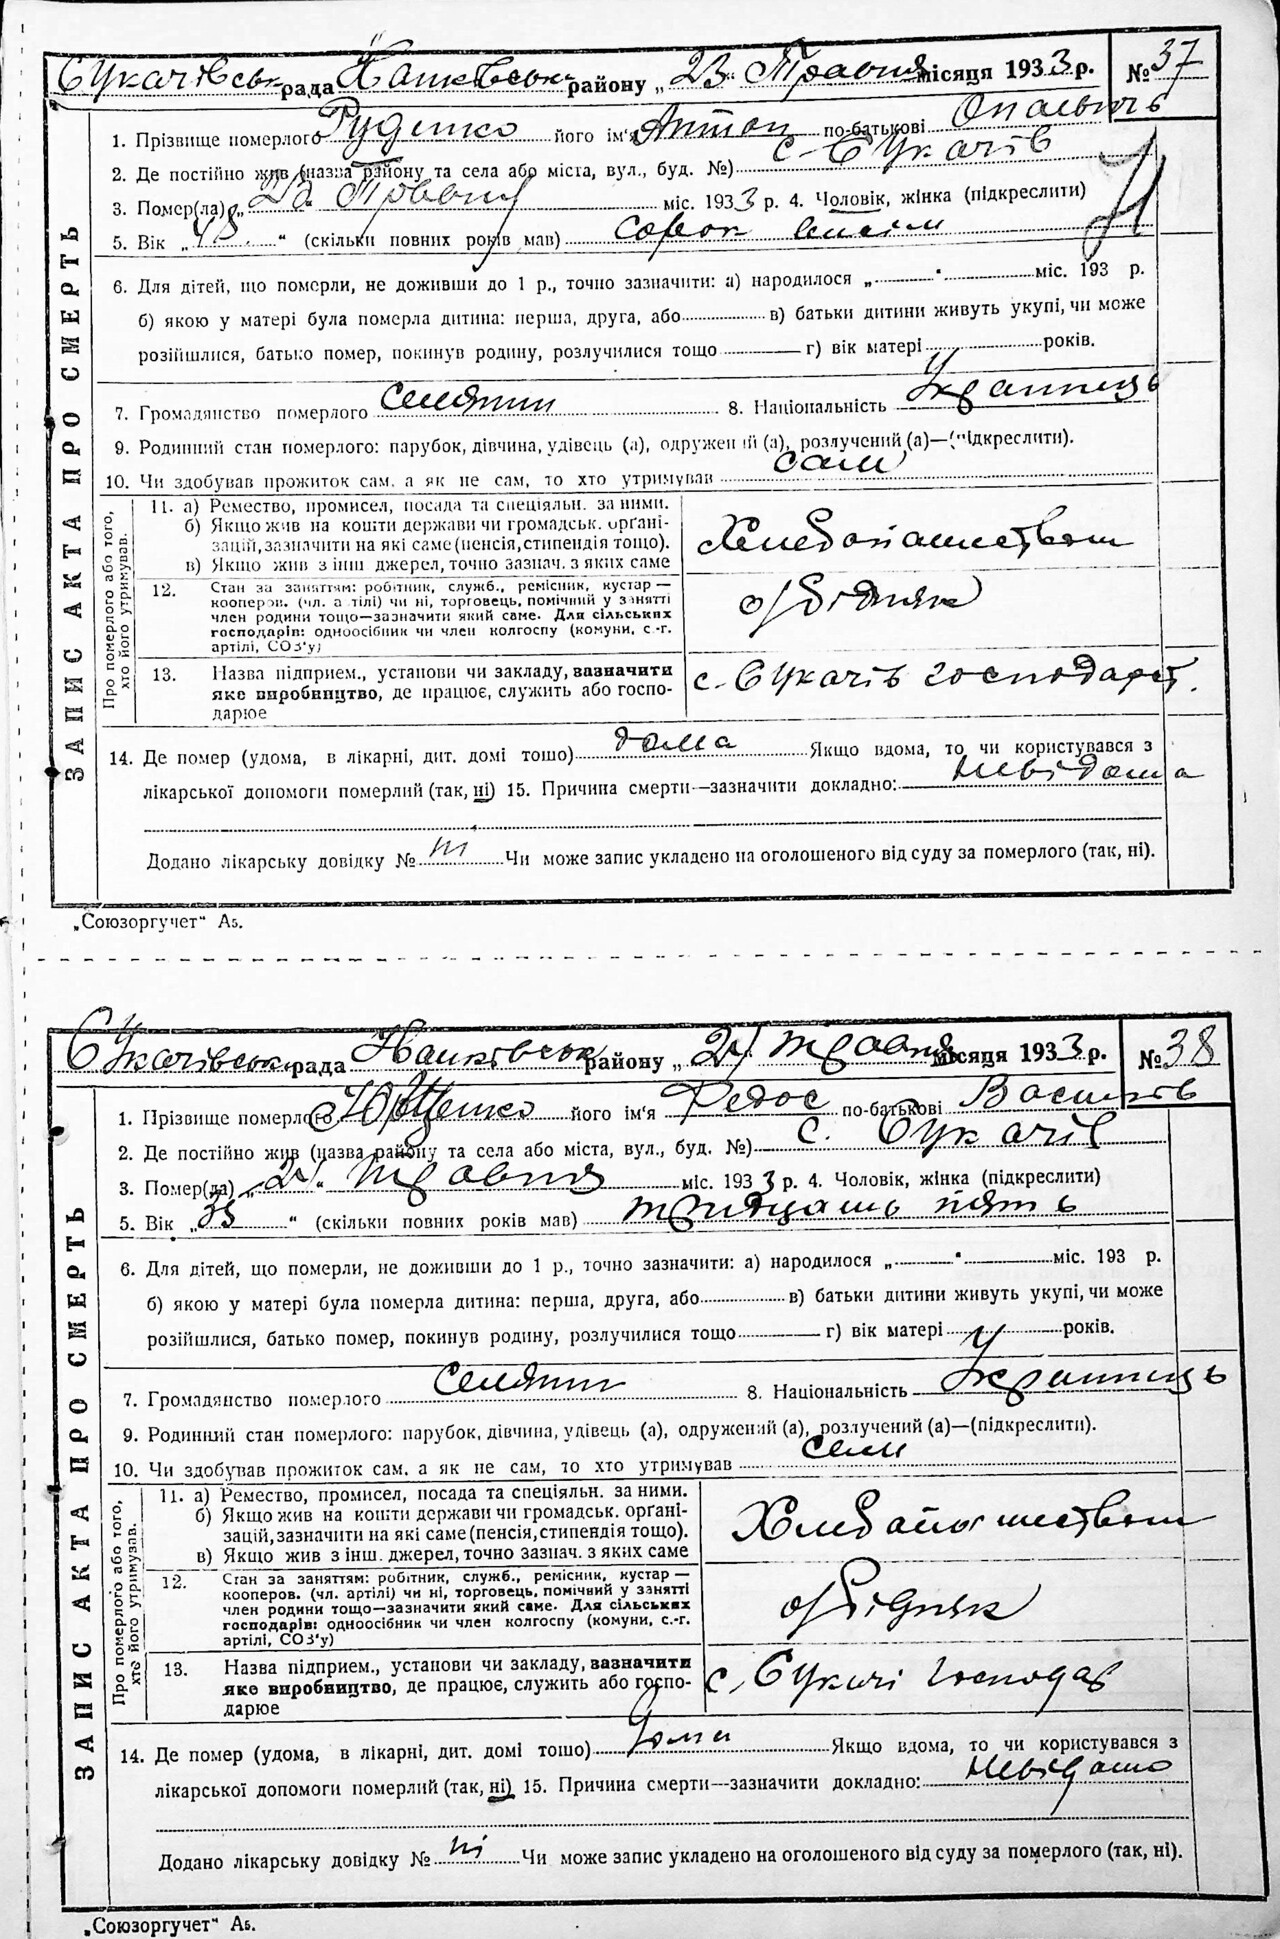 Сукачівськ рада Іванківськ району „23“ Травня місяця 1933 р. № 37
1. Прізвище померлого Руденко його ім'я Антон по-батькові
2. Де постійно жив (назва району та села або міста, вул., буд. №) с. Сукачів
3. Помер(ла) „ Травня міс. 1933 р. 4. Чоловік, жінка (підкреслити)
5. Вік „48“ (скільки повних років мав) сорок вісім
6. Для дітей, що померли, не доживши до 1 р., точно зазначити: а) народилося „ “ міс. 193 р.
б) якою у матері була померла дитина: перша, друга, або в) батьки дитини живуть укупі, чи може
розійшлися, батько помер, покинув родину, розлучилися тощо г) вік матері років.
7. Громадянство померлого селянин 8. Національність Українець
9. Родинний стан померлого: парубок, дівчина, удівець (а), одружений (а), розлучений (а)—(підкреслити).
10. Чи здобував прожиток сам, а як не сам, то хто утримував сам
ЗАПИС АКТА ПРО СМЕРТЬ
Про померлого або того,
хто його утримував.
11. а) Ремество, промисел, посада та спеціяльн. за ними.
б) Якщо жив на кошти держави чи громадськ. органі-
зацій, зазначити на які саме (пенсія, стипендія тощо).
в) Якщо жив з інш джерел, точно зазнач. з яких саме
12. Стан за заняттям: робітник, служб., ремісник, кустар—
кооперов. (чл. артілі) чи ні, торговець, помічний у занятті
член родини тощо—зазначити який саме. Для сільських
господарів: одноосібник чи член колгоспу (комуни, с.-г.
артілі, СОЗ'у)
13. Назва підприєм., установи чи закладу, вазначити
яке виробництво, де працює, служить або госпо-
дарює
с. Сукачів господарст.
14. Де помер (удома, в лікарні, дит. домі тощо) дома Якщо вдома, то чи користувався з
лікарської допомоги померлий (так, ні) 15. Причина смерти—зазначити докладно: невідома
Додано лікарську довідку № ні Чи може запис укладено на оголошеного від суду за померлого (так, ні).
„Союзоргучет“ А5.
Сукачівськ рада Іванківськ району „24“ травня місяця 1933 р. № 38
1. Прізвище померлого Ющенко його ім'я Федос по-батькові
2. Де постійно жив (назва району та села або міста, вул., буд. №) с. Сукачів
3. Помер(ла) „24“ травня міс. 1933 р. 4. Чоловік, жінка (підкреслити)
5. Вік „35“ (скільки повних років мав) тридцать пять
6. Для дітей, що померли, не доживши до 1 р., точно зазначити: а) народилося „ “ міс. 193 р.
б) якою у матері була померла дитина: перша, друга, або в) батьки дитини живуть укупі, чи може
розійшлися, батько помер, покинув родину, розлучилися тощо г) вік матері років.
7. Громадянство померлого селянин 8. Національність Українець
9. Родинний стан померлого: парубок, дівчина, удівець (а), одружений (а), розлучений (а)—(підкреслити).
10. Чи здобував прожиток сам, а як не сам, то хто утримував сам
ЗАПИС АКТА ПРО СМЕРТЬ
Про померлого або того,
хто його утримував.
11. а) Ремество, промисел, посада та спеціяльн. за ними.
б) Якщо жив на кошти держави чи громадськ. органі-
зацій, зазначити на які саме (пенсія, стипендія тощо).
в) Якщо жив з інш. джерел, точно зазнач. з яких саме
12. Стан за заняттям: робітник, служб., ремісник, кустар—
кооперов. (чл. артілі) чи ні, торговець, помічний у занятті
член родини тощо—зазначити який саме. Для сільських
господарів: одноосібник чи член колгоспу (комуни, с.-г.
артілі, СОЗ'у)
13. Назва підприєм., установи чи закладу, вазначити
яке виробництво, де працює, служить або госпо-
дарює
14. Де помер (удома, в лікарні, дит. домі тощо) дома Якщо вдома, то чи користувався з
лікарської допомоги померлий (так, ні) 15. Причина смерти—зазначити докладно: невідомо
Додано лікарську довідку № ні Чи може запис укладено на оголошеного від суду за померлого (так, ні).
„Союзоргучет“ А5.